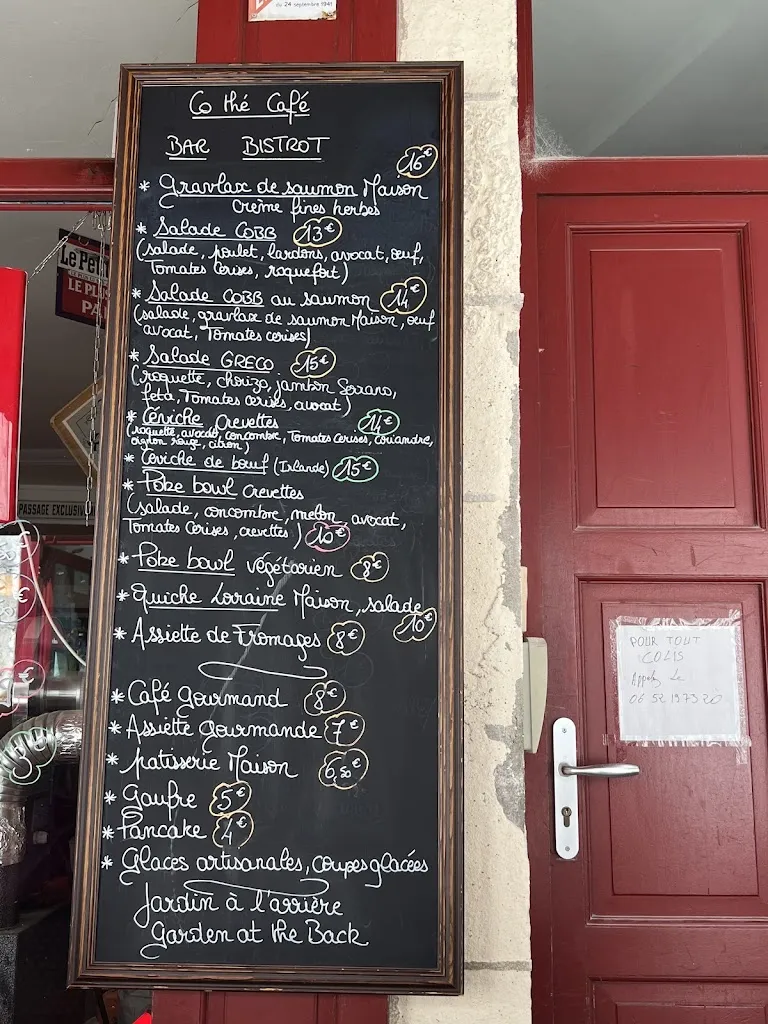 du 24 septembre 1941
Co thé Café
BAR BISTROT
16€
* Gravlax de saumon Maison
Crème fines herbes
* Salade COBB 13€
(salade, poulet, lardons, avocat, œuf,
Tomates Cerises, roquefort)
* Salade COBB au saumon 14€
(salade, gravlax de saumon Maison, œuf
avocat, Tomates cerises)
* Salade GRECO 15€
(roquette, chorizo, jambon Serrano,
feta, Tomates cerises, avocat)
* Ceviche Crevettes 14€
(roquette, avocat, concombre, Tomates cerises, coriandre,
oignon rouge, citron)
* Ceviche de bœuf (Irlande) 15€
* Poke bowl crevettes
(salade, concombre, melon, avocat,
Tomates Cerises, crevettes) 10€
* Poke bowl végétarien 8€
* Quiche Lorraine Maison, salade
10€
* Assiette de Fromages 8€
* Café gourmand 8€
* Assiette gourmande 7€
* patisserie Maison 6,50€
* Gaufre 5€
* Pancake 4€
* Glaces artisanales, coupes glacées
Jardin à l'arrière
Garden at the Back
Le Peti
LE PLUS
PA
PASSAGE EXCLUSIV
POUR TOUT
COLIS
Appeler le
06 52 19 73 20